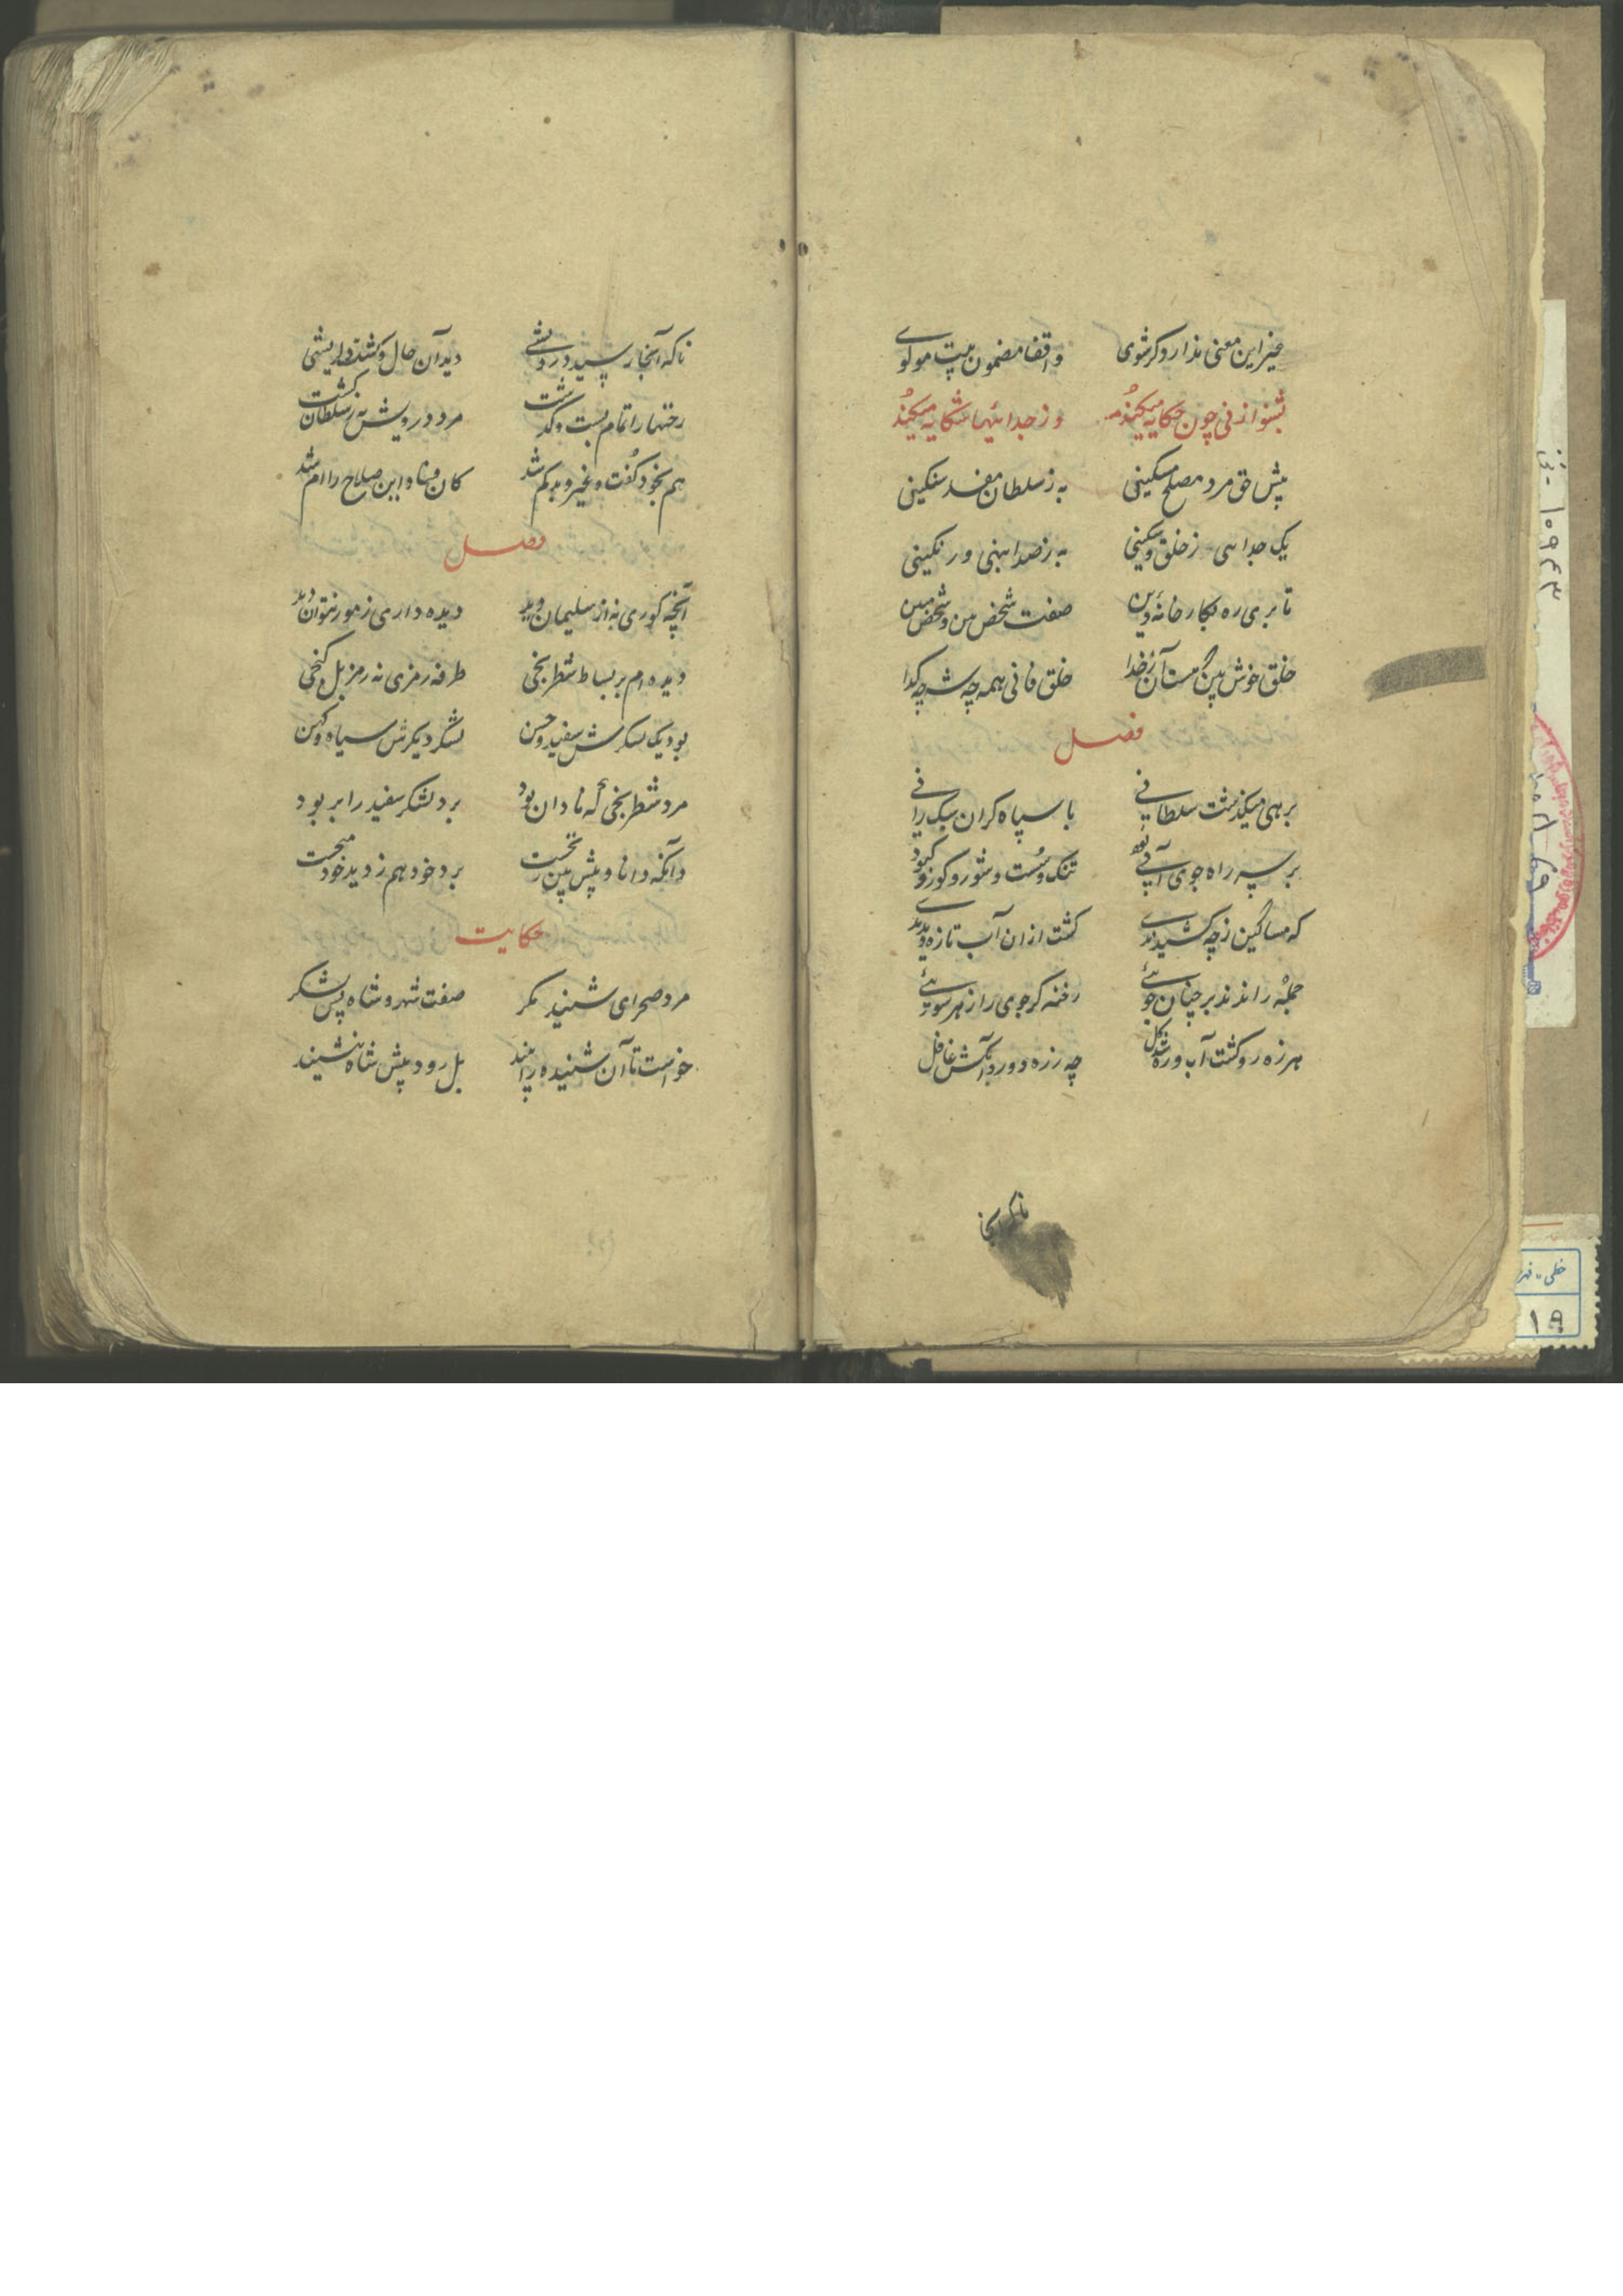 غیر این معنی ندارد گر شوی واقف مضمون بیت مولوی
بشنو از نی چون حکایه میکند وز جدائیها شکایه میکند
پیش حق مرد مصلح مسکینی به ز سلطان مفسد سنکینی
یک جدا می ز خلق و مسکینی به ز صد ابهنی و رنکینی
تا بری ره بکارخانهٔ دین صفت شخص بین و شخص مبین
خلق خوش بین که هست آن ز خدا خلق فانی همه چه شه چه کدا
فصل
برهی میکذشت سلطانی با سپاه کران سبک رانی
بر سر راه جوی آبی بود تنک و سست و شور و
که مساکین از چه کشیدندی کشت از ان آب تازه دیدندی
جمله راندند بر چنان جوئی رخنه کر جوی را ز هر سوئی
هرزه رو کشت آب و ره شد کل چه رزه دور از آتش غافل
ناکه آنجا
ناکه آنجا رسید درویشی دید آن حال و کشت دلریشی
رختها را تمام بست و کذشت مرد درویش به ز سلطان کشت
هم بخود کفت و غیر و بد کم شد کان فساد این صلاح را ام شد
فصل
آنچه کوری نه از سلیمان دید دیده داری ز مور نتوان دید
دیده ام بر بساط شطرنجی طرفه رمزی نه رمز بل کنجی
بود یک لشکرش سفید و حسن لشکر دیکرش سیاه و کهن
مرد شطرنجی که نادان بود برد لشکر سفید را بر بود
وآنکه دانا و پیش بین نخست برد خود هم ز دید خود میجست
حکایت
مرد صحرای شنید مکر صفت شهر و شاه پس لشکر
خواست تا آن شنیده را بیند بل رود پیش شاه بنشیند
۱۰۹۴۳
خطی
۱۹